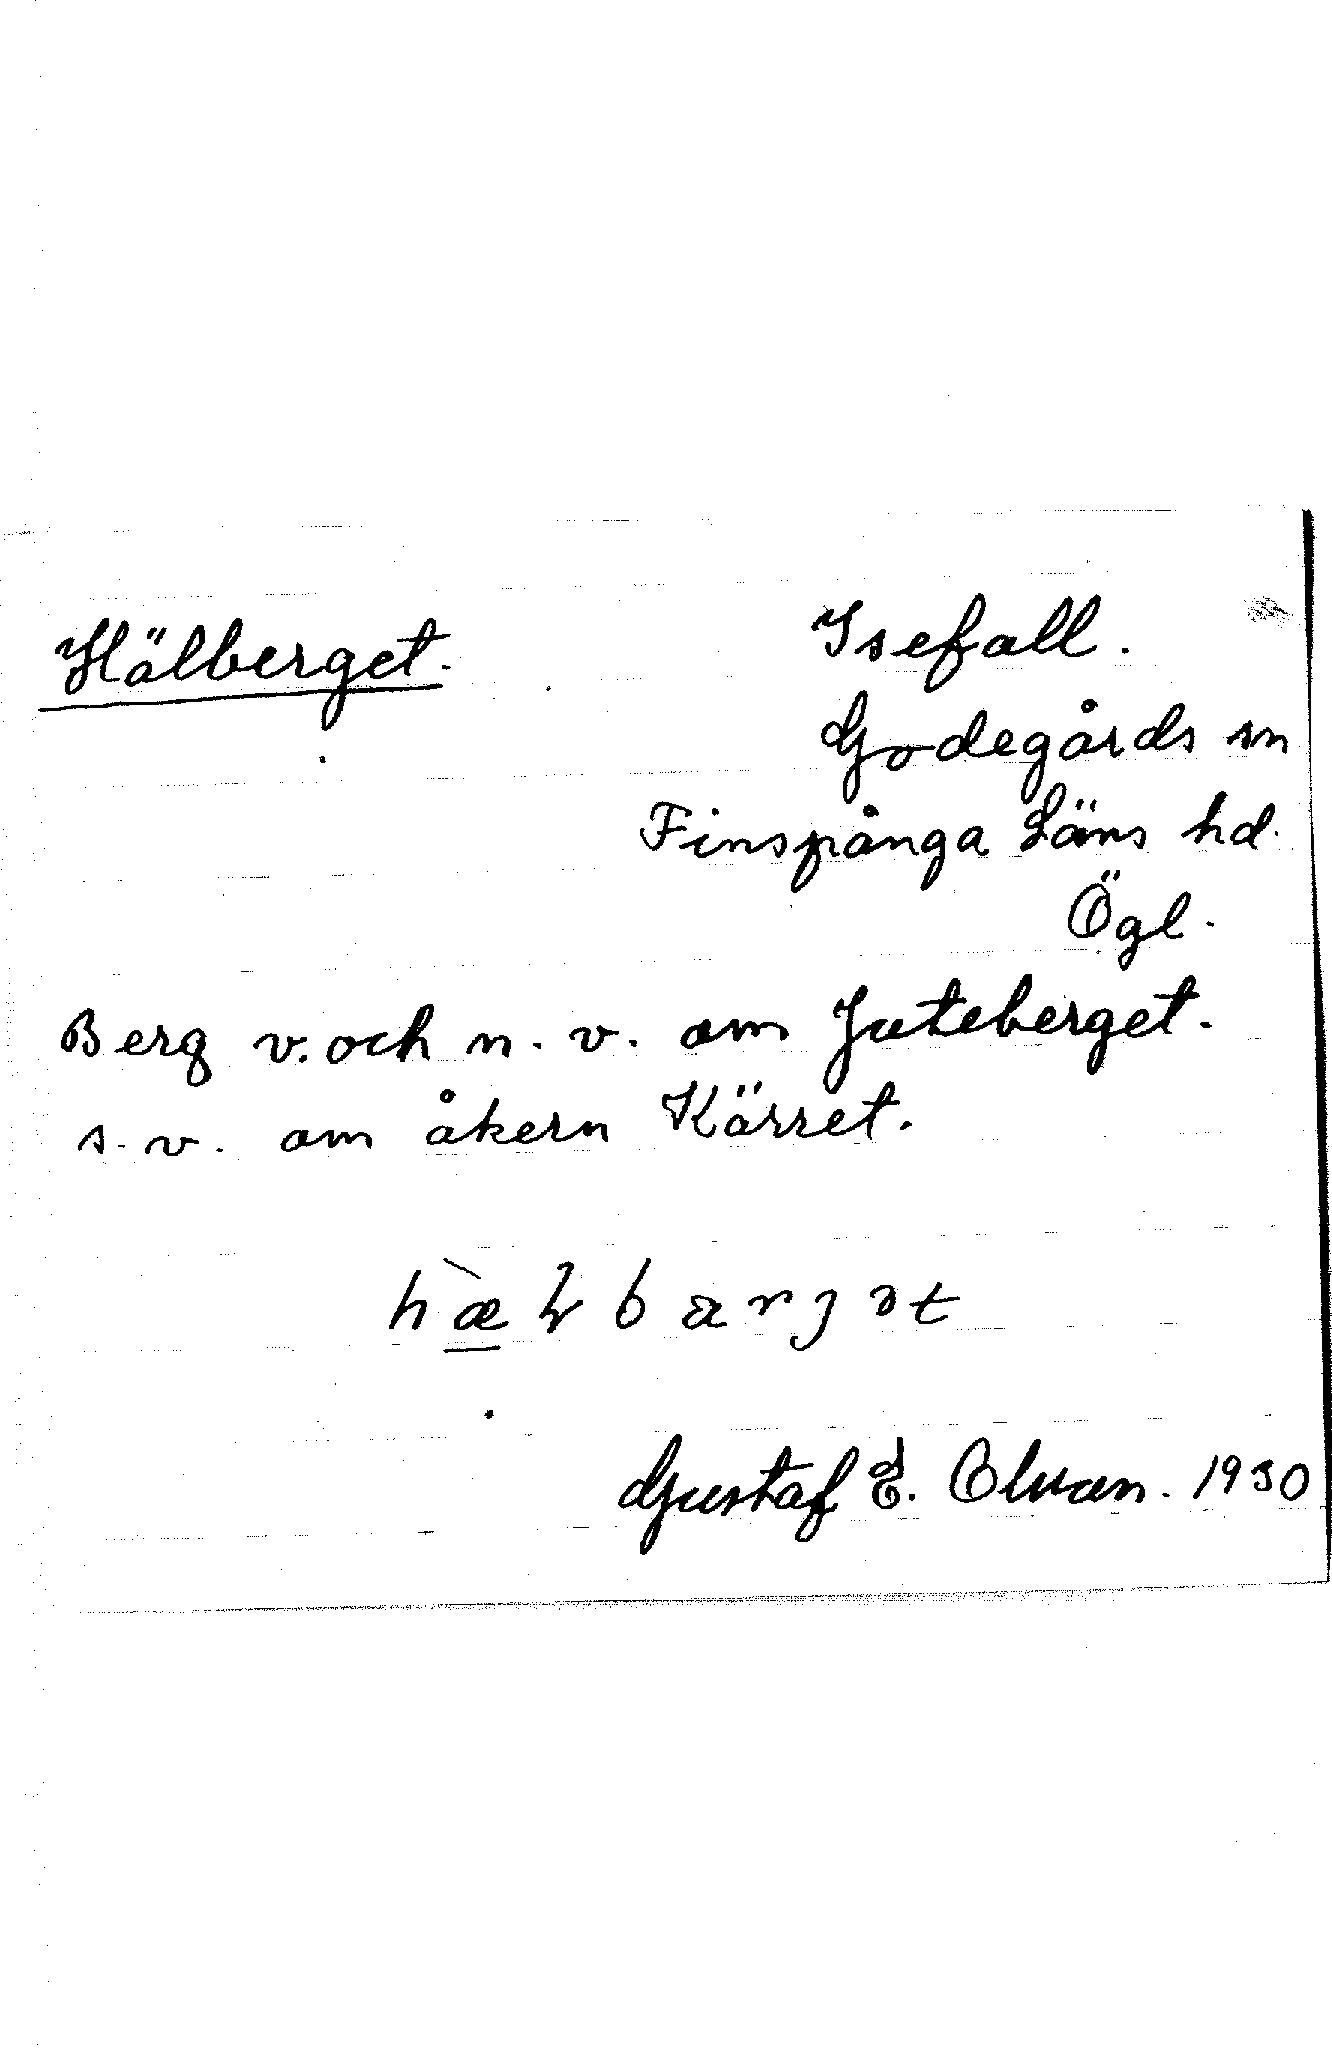 Hälberget.
Isefall.
Godegårds sn
Finspånga Läns hd.
Ögl.
Berg v. och n. v. om Juteberget.
s. v. om åkern Kärret.
Gustaf E. 1930